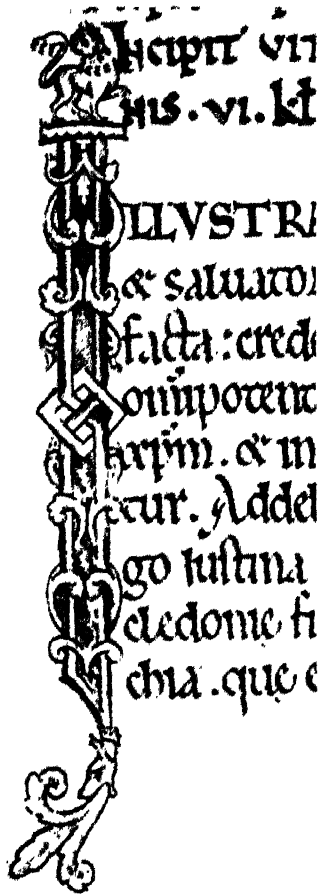 Incipit vit
nis. vi. kł
ILLVSTRA
& saluator
facta: crede
omīpotent
xp̄m. & in
tur. Addel
go Iustina
cledonię fi
chia. quę e